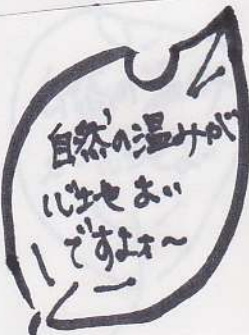 自然の温みが
心地よい
ですよォ〜